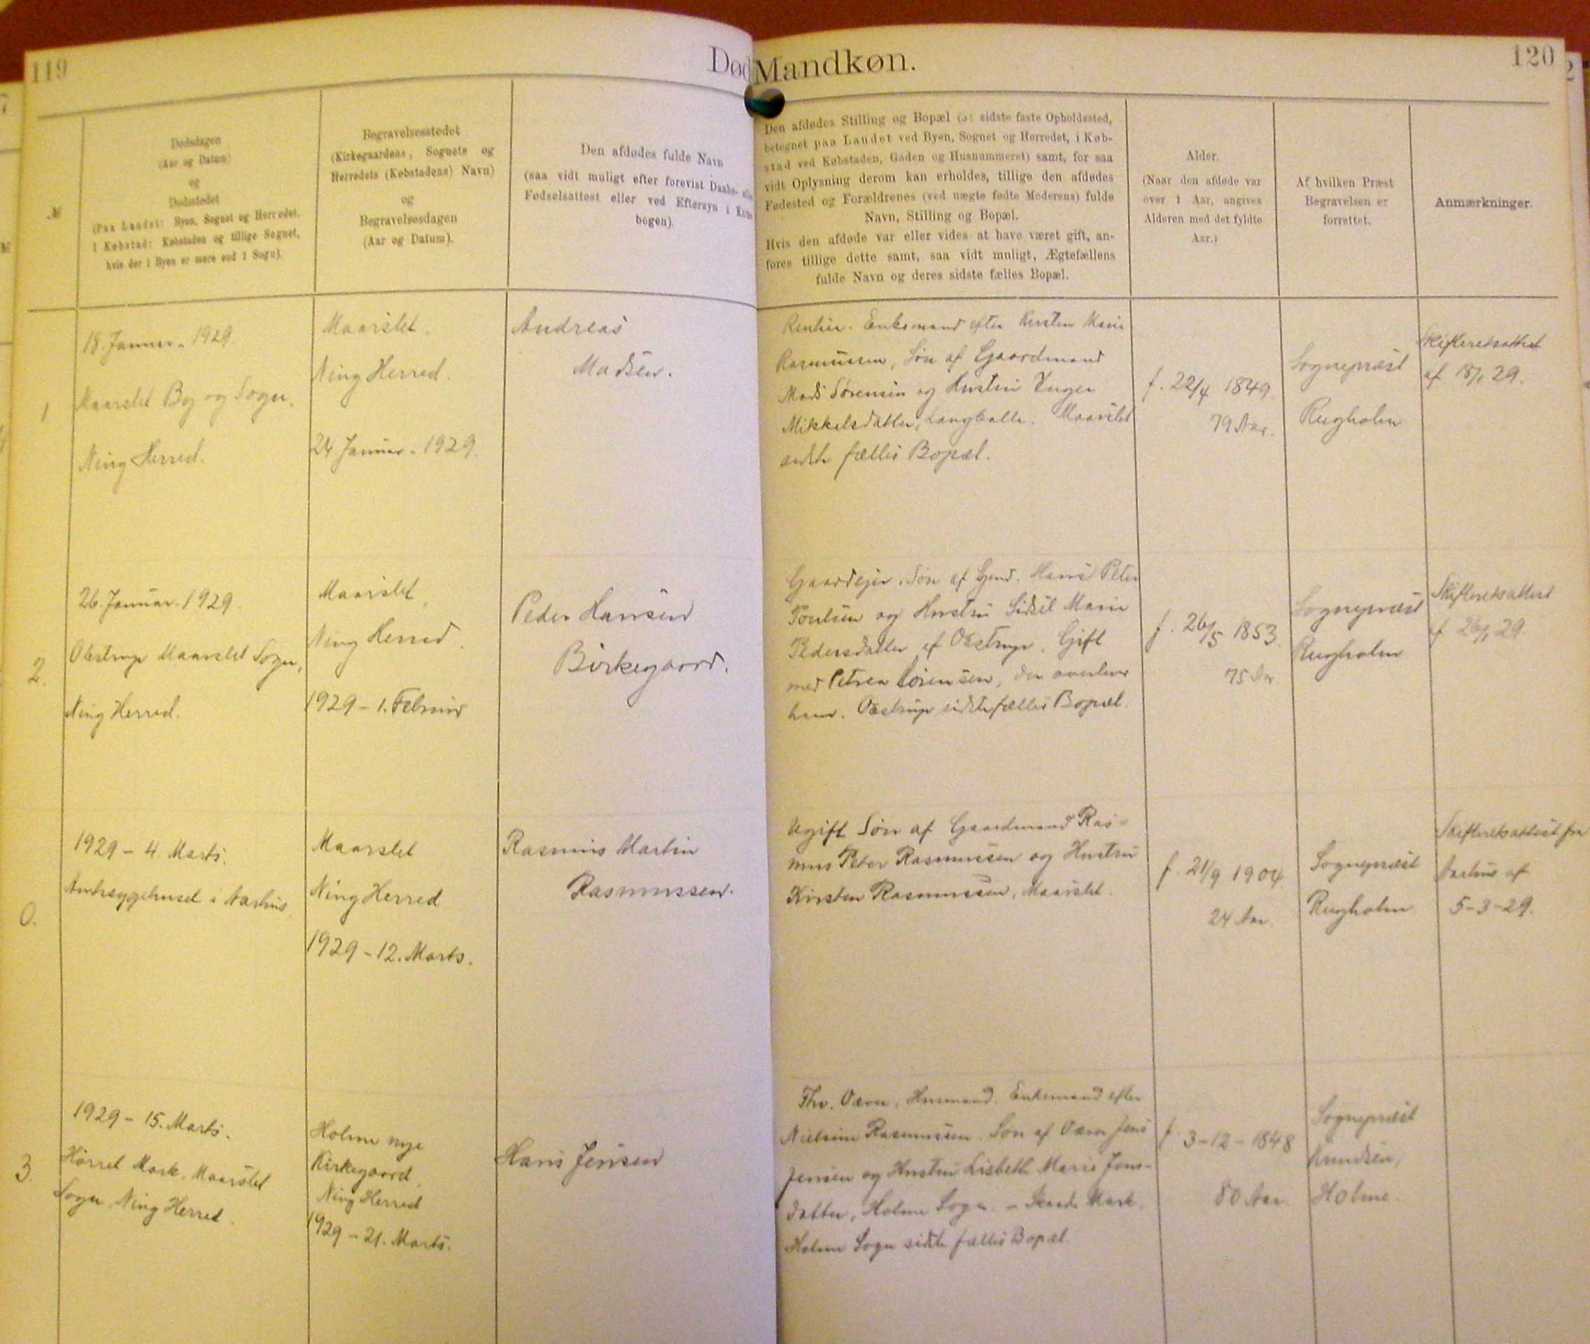 119
Død
Mandkøn.
120
№
Dødsdagen
(Aar og Datum)
og
Dødsstedet
(Paa Landet: Byen, Sognet og Herredet,
i Købstad: Købstaden og tillige Sognet,
hvis der i Byen er mere end 1 Sogn).
Begravelsesstedet
(Kirkegaardens, Sognets og
Herredets (Købstadens) Navn)
og
Begravelsesdagen
(Aar og Datum).
Den afdødes fulde Navn
(saa vidt muligt efter forevist Daabs-
Fødselsattest eller ved Eftersyn i
bogen).
Den afdødes Stilling og Bopæl (ɔ: sidste faste Opholdssted,
betegnet paa Landet ved Byen, Sognet og Herredet, i Køb-
stad ved Købstaden, Gaden og Husnummeret) samt, for saa
vidt Oplysning derom kan erholdes, tillige den afdødes
Fødested og Forældrenes (ved uægte fødte Moderens) fulde
Navn, Stilling og Bopæl.
Hvis den afdøde var eller vides at have været gift, an-
føres tillige dette samt, saa vidt muligt, Ægtefællens
fulde Navn og deres sidste fælles Bopæl.
Alder.
(Naar den afdøde var
over 1 Aar, angives
Alderen med det fyldte
Aar.)
Af hvilken Præst
Begravelsen er
forrettet.
Anmærkninger.
1
18. Januar. 1929.
Maarslet By og Sogn.
Ning Herred.
Maarslet.
Ning Herred.
24 Januar. 1929.
Andreas
Madsen.
Rentier. Enkemand efter Kirsten Marie
Rasmussen, Søn af Gaardmand
Mads Sørensen og Hustru Inger
Mikkelsdatter, Langballe. Maarslet
sidste fælles Bopæl.
f. 22/4 1849.
79 Aar.
Sognepræst
Rugholm
Skifteretsattest
af 18/1 29.
2.
26. Januar. 1929.
Obstrup Maarslet Sogn,
Ning Herred.
Maarslet,
Ning Herred.
1929 - 1. Februar
Peder Hansen
Birkegaard.
Gaardejer. Søn af Gmd. Hans Peter
Poulsen og Hustru Sidsel Marie
Pedersdatter af Obstrup. Gift
med Petrea Sørensen, der overlever
ham. Obstrup sidste fælles Bopæl.
f. 26/5 1853.
75 Aar
Sognepræst
Rugholm
Skifteretsattest
af 26/1 29.
0.
1929 - 4. Marts.
Amtssygehuset i Aarhus.
Maarslet
Ning Herred
1929 - 12. Marts.
Rasmus Martin
Rasmussen.
Ugift Søn af Gaardmand Ras-
mus Peter Rasmussen og Hustru
Kirsten Rasmussen, Maarslet.
f. 21/9 1904
24 Aar.
Sognepræst
Rugholm
Skifteretsattest fra
Aarhus af
5-3-29.
3.
1929 - 15. Marts.
Hørret Mark. Maarslet
Sogn Ning Herred.
Holme nye
Kirkegaard,
Ning Herred
1929 - 21. Marts.
Hans Jensen
Fhv. Væver, Husmand. Enkemand efter
Nielsine Rasmussen. Søn af Væver Jens
Jensen og Hustru Lisbeth Marie Jens-
datter, Holme Sogn. - Mark.
Holme Sogn sidste fælles Bopæl.
f. 3-12-1848
80 Aar.
Sognepræst
Knudsen,
Holme.